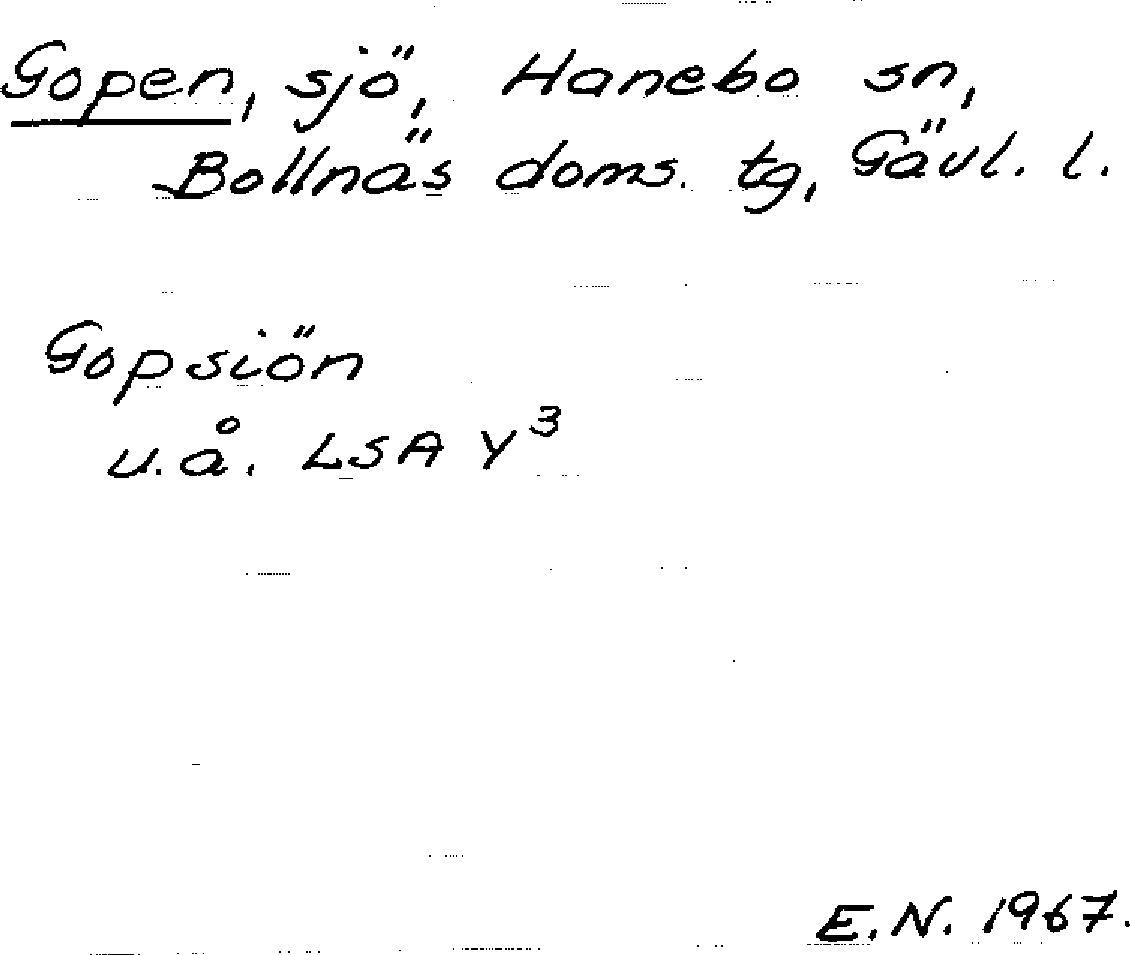 Gopen, sjö, Hanebo sn,
Bollnäs doms. tg, Gävl. l.
Gopsiön
u.å. LSA Y³
E.N. 1967.